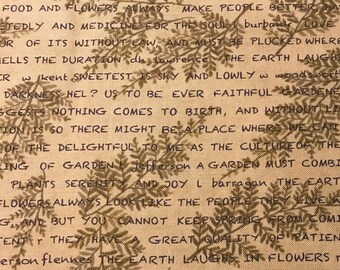 FOOD AND FLOWERS ALWAYS MAKE PEOPLE BETTER,
AND MEDICINE FOR THE SOUL l burbank LOVE
OF ITS WITHOUT LAW, AND MUST BE PLUCKED WHERE
THE DURATION dh lawrence THE EARTH LAUGHS
w kent SWEETEST IS SHY AND LOWLY w
DARKNESS US TO BE EVER FAITHFUL
NOTHING COMES TO BIRTH, AND WITHOUT
IS SO THERE MIGHT BE A PLACE WHERE WE CAN
OF THE DELIGHTFUL TO ME AS THE CULTURE OF THE
OF GARDEN t jefferson A GARDEN MUST COMBI
PLANTS SERENITY AND JOY l barragan THE EARTH
FLOWERS ALWAYS LOOK LIKE THE PEOPLE THEY LIVE
AND BUT YOU CANNOT KEEP SPRING FROM COMING
THEY HAVE A GREAT QUALITY OF PATIEN
THE EARTH LAUGHS IN FLOWERS r